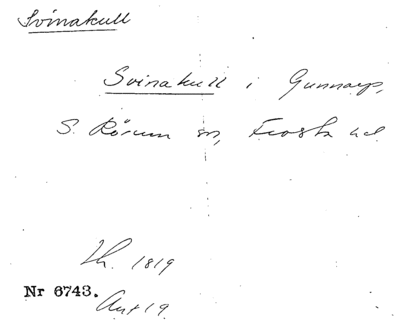 Svinakull
Svinakull i Gunnarp,
S. Rörum sn, Frosta hd
Lh. 1819
Nr 6743.